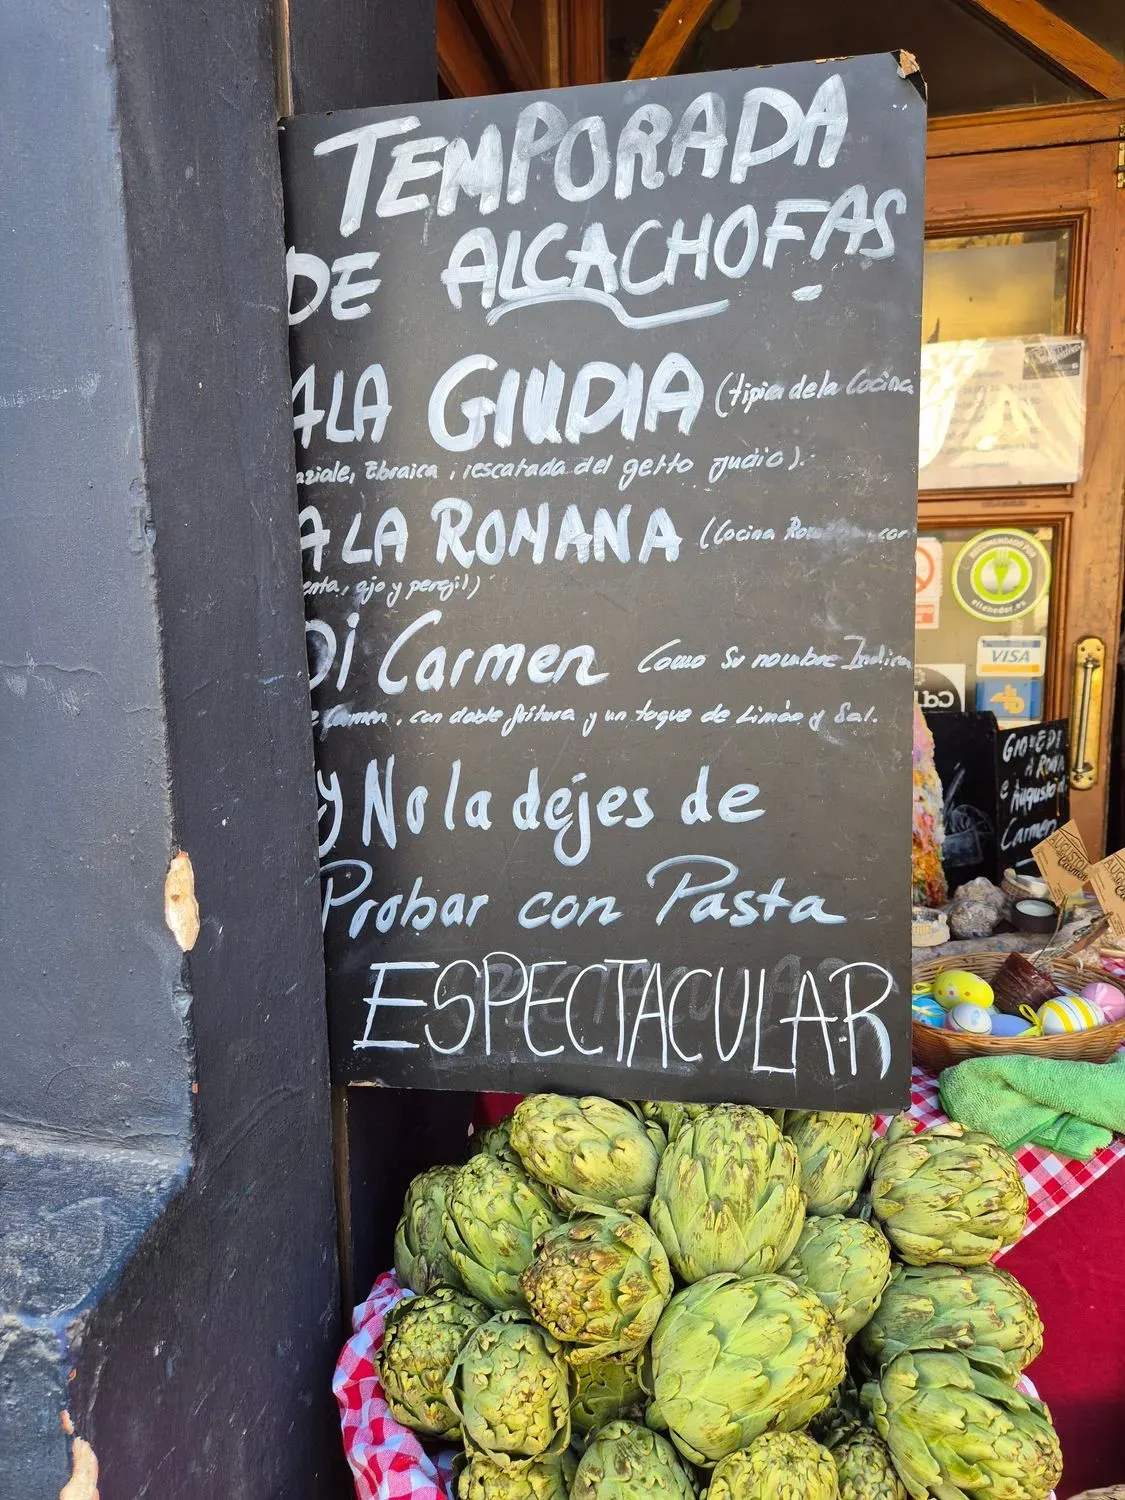 TEMPORADA
DE ALCACHOFAS
A LA GIUDIA (tipica de la Cocina
aziale, Ebraica, rescatada del getto judio).
A LA ROMANA (Cocina con
enta, ajo y perejil)
Di Carmen Como Su nombre Indica
e Carmen, con doble fritura y un toque de Limón y Sal.
y No la dejes de
Probar con Pasta
ESPECTACULAR
RECOMENDADO POR
eltenedor.es
VISA
GIOVEDI
A ROMA
e Augusto
Carmen
AUGUSTO
Carmen